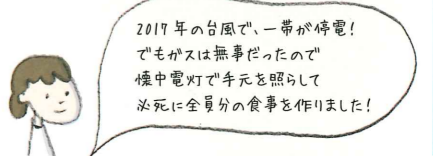 2017年の台風で、一帯が停電!
でもガスは無事だったので
懐中電灯で手元を照らして
必死に全員分の食事を作りました!